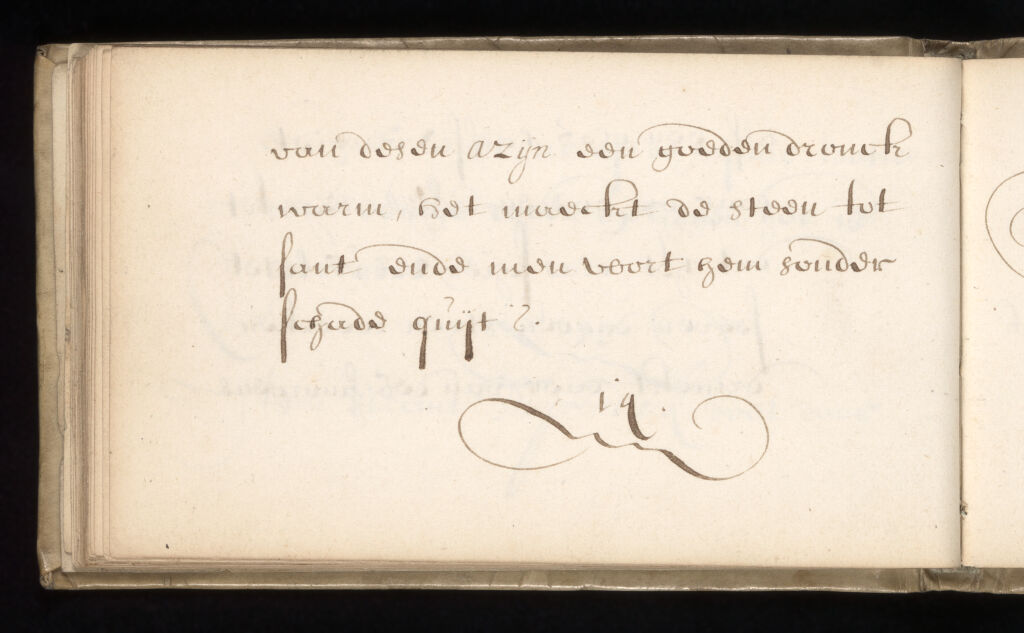 van desen azijn een goeden dronck
warm, het maeckt de steen tot
sant ende men wort hem sonder
schade quijt
19.